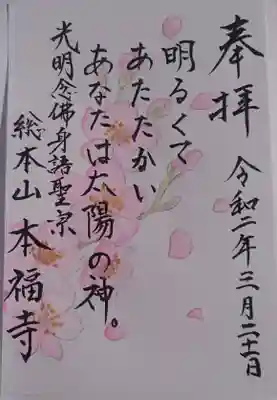 奉拝
令和二年三月二十一日
明るくて
あたたかい
あなたは太陽の神。
光明念佛身語聖宗
総本山本福寺